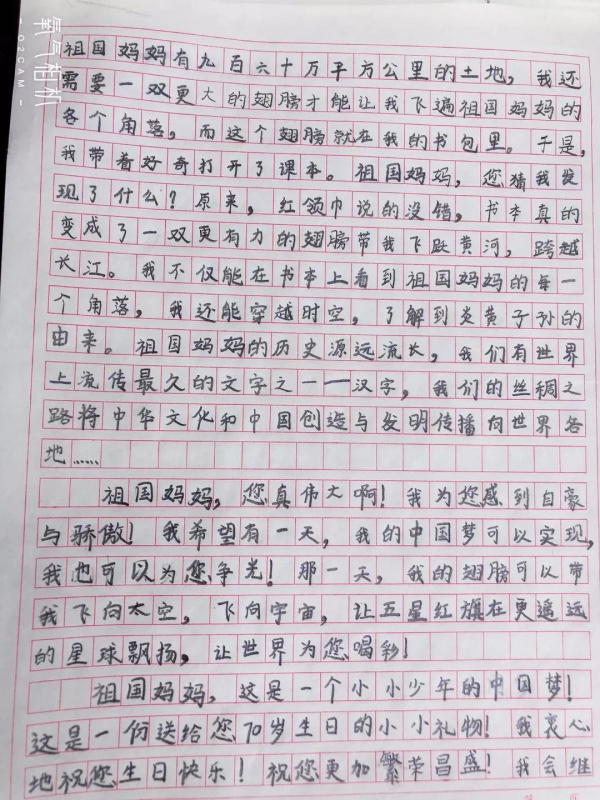 氧气相机
-O2CAM-
祖国妈妈有九百六十万平方公里的土地，我还
需要一双更大的翅膀才能让我飞遍祖国妈妈的
各个角落，而这个翅膀就在我的书包里。于是，
我带着好奇打开了课本。祖国妈妈，您猜我发
现了什么？原来，红领巾说的没错，书本真的
变成了一双更有力的翅膀带我飞跃黄河，跨越
长江。我不仅能在书本上看到祖国妈妈的每一
个角落，我还能穿越时空，了解到炎黄子孙的
由来。祖国妈妈的历史源远流长，我们有世界
上流传最久的文字之一一汉字，我们的丝稠之
路将中华文化和中国创造与发明传播向世界各
地……
祖国妈妈，您真伟大啊！我为您感到自豪
与骄傲！我希望有一天，我的中国梦可以实现，
我也可以为您争光！那一天，我的翅膀可以带
我飞向太空，飞向宇宙，让五星红旗在更遥远
的星球飘扬，让世界为您喝彩！
祖国妈妈，这是一个小小少年的中国梦！
这是一份送给您70岁生日的小小礼物！我衷心
地祝您生日快乐！祝您更加繁荣昌盛！我会继